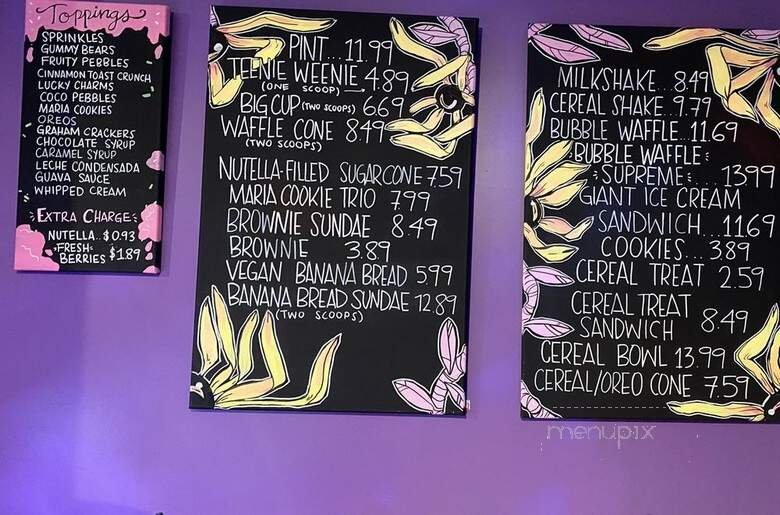 Toppings
SPRINKLES
GUMMY BEARS
FRUITY PEBBLES
CINNAMON TOAST CRUNCH
LUCKY CHARMS
COCO PEBBLES
MARIA COOKIES
OREOS
GRAHAM CRACKERS
CHOCOLATE SYRUP
CARAMEL SYRUP
LECHE CONDENSADA
GUAVA SAUCE
WHIPPED CREAM
EXTRA CHARGE:
NUTELLA..$0.93
FRESH
BERRIES $1.89
PINT...11.99
TEENIE WEENIE 4.89
(ONE SCOOP)
BIG CUP (TWO SCOOPS) 6.69
WAFFLE CONE 8.49
(TWO SCOOPS)
NUTELLA-FILLED SUGAR CONE 7.59
MARIA COOKIE TRIO 7.99
BROWNIE SUNDAE 8.49
BROWNIE 3.89
VEGAN BANANA BREAD 5.99
BANANA BREAD SUNDAE 12.89
(TWO SCOOPS)
MILKSHAKE...8.49
CEREAL SHAKE.9.79
BUBBLE WAFFLE..11.69
BUBBLE WAFFLE
SUPREME....13.99
GIANT ICE CREAM
SANDWICH...11.69
COOKIES...3.89
CEREAL TREAT 2.59
CEREAL TREAT
SANDWICH 8.49
CEREAL BOWL 13.99
CEREAL/OREO CONE 7.59
menupix